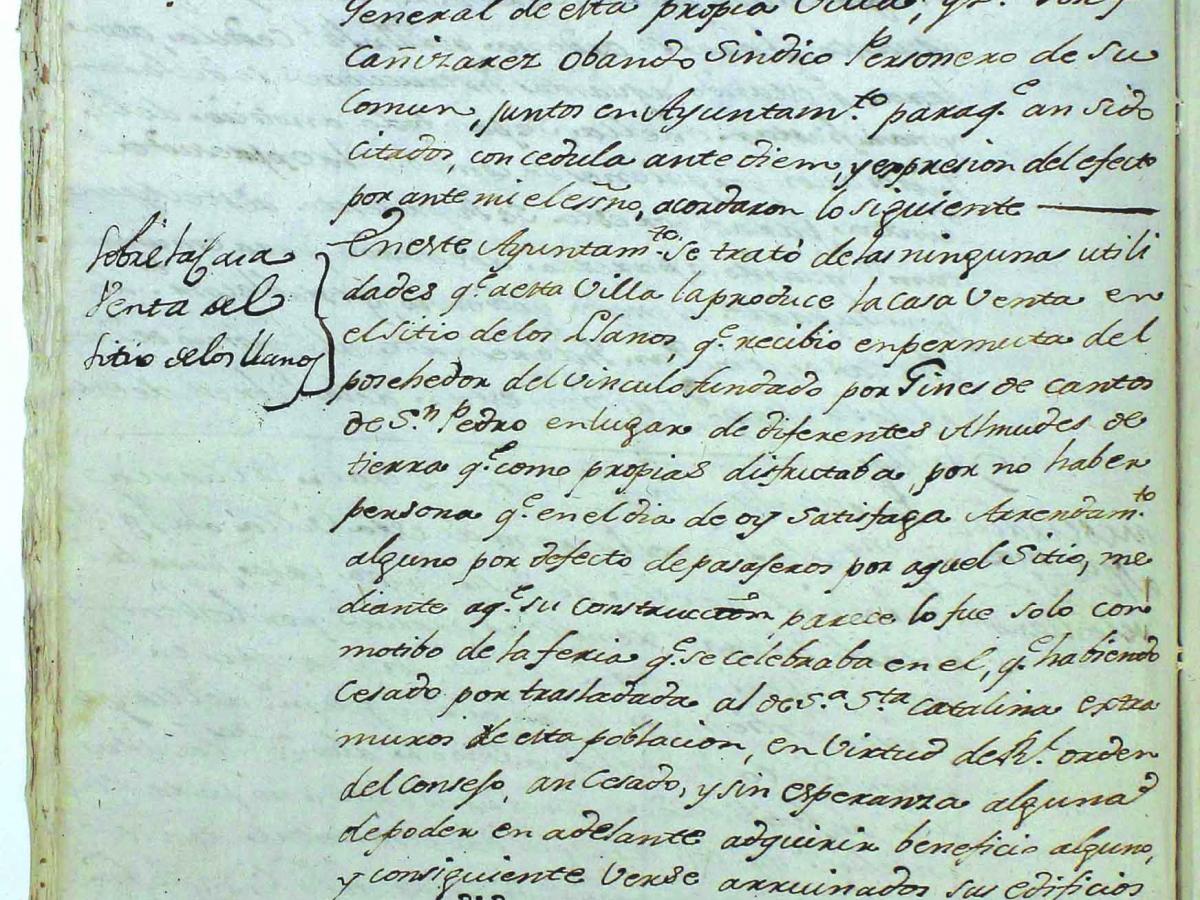 General de esta propia Villa, y
Cañizarez Obando Sindico Personero de Su
Comun, juntos en Ayuntamto. paraqe. an sido
citados, con cedula ante diem, y expresion del efecto
por ante mi el essno, acordaron lo siguiente
Sobre la Casa
Venta del
Sitio delos Llanos
En este Ayuntamto. Se tratò delas ningunas utili
dades qe. a esta Villa la produce la casa Venta en
el sitio de los Llanos, qe. recibio en permuta del
posehedor del vinculo fundado por Gines de cantos
de Sn. Pedro en lugar de diferentes Almudes de
tierra qe. como propias disfrutaba, por no haber
persona qe. en el dia de oy satisfaga Arrendamto.
alguno por defecto de pasajeros por aquel Sitio, me
diante aqe. su construccion, parece lo fue solo con
motibo de la feria qe. se celebraba en el, qe. habiendo
Cesado por trasladada al de Sa. Sta Catalina extra
muros de esta poblacion, en Virtud de Rl. orden
del Consejo, an Cesado, y sin esperanza alguna
de poder en adelante adquirir beneficio alguno,
y consiguiente Verse arruinados sus edificios